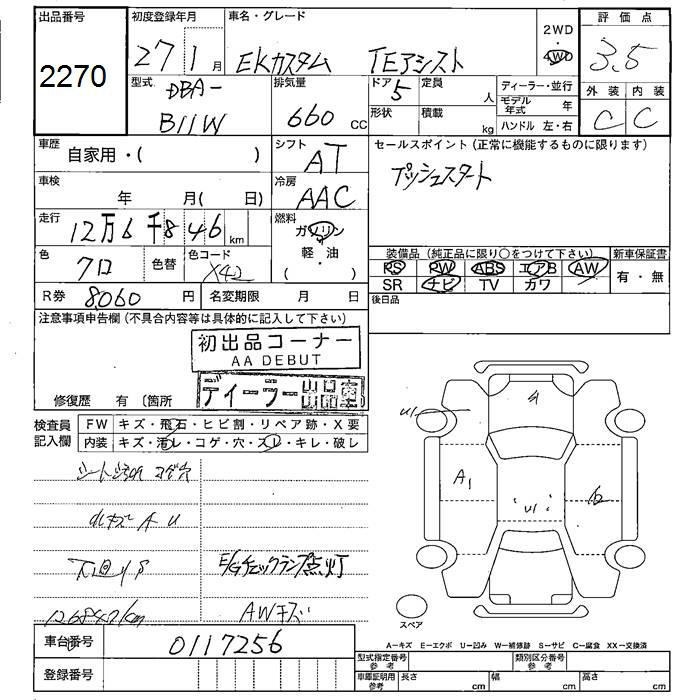 出品番号
2270
初度登録年月
27 1月
車名・グレード
EKカスタム TEアシスト
2WD
4WD
評価点
3.5
型式
DBA-
B11W
排気量
660 CC
ドア 5
定員 人
形状
積載 kg
ディーラー・並行
モデル年式 年
ハンドル 左・右
外装 内装
C C
車歴
自家用・( )
シフト
AT
セールスポイント(正常に機能するものに限ります)
プッシュスタート
車検
年 月( 日)
冷房
AAC
走行
12万6千846 km
燃料
ガソリン
軽・油
( )
色
クロ
色替
色コード
X42
装備品(純正品に限り○をつけて下さい)
新車保証書
RS RW ABS エアB AW
SR ナビ TV カワ
有・無
R券 8060 円
名変期限 月 日
後日品
注意事項申告欄(不具合内容等は具体的に記入して下さい)
初出品コーナー
AA DEBUT
ディーラー出品車
修復歴 有〔箇所
検査員
記入欄
FW キズ・飛石・ヒビ割・リペア跡・X要
内装 キズ・汚レ・コゲ・穴・スレ・キレ・破レ
シート汚れ コゲ穴
小キズ A U
下回り S
E/Gチェックランプ点灯
126847km
AWキズ
U1
A
A1
U1
スペア
車台番号
0117256
登録番号
A―キズ E―エクボ U―凹み W―補修跡 S―サビ C―腐食 XX―交換済
型式指定番号
参考
類別区分番号
参考
車庫証明用
参考
長さ cm
幅 cm
高さ cm